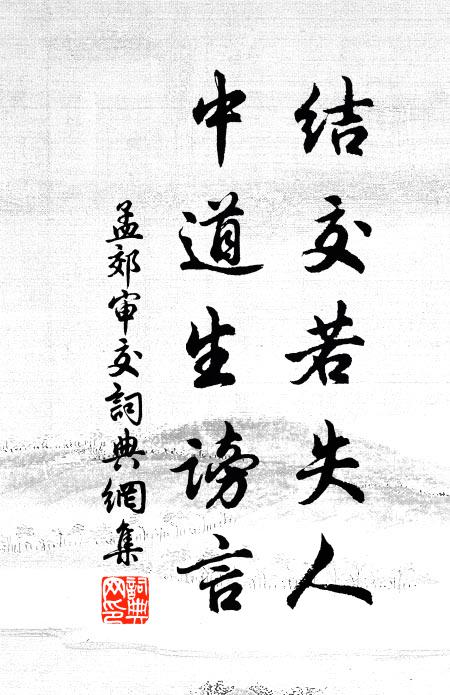 结交若失人
中道生謗言
孟郊审交詞典網集
詞典網印